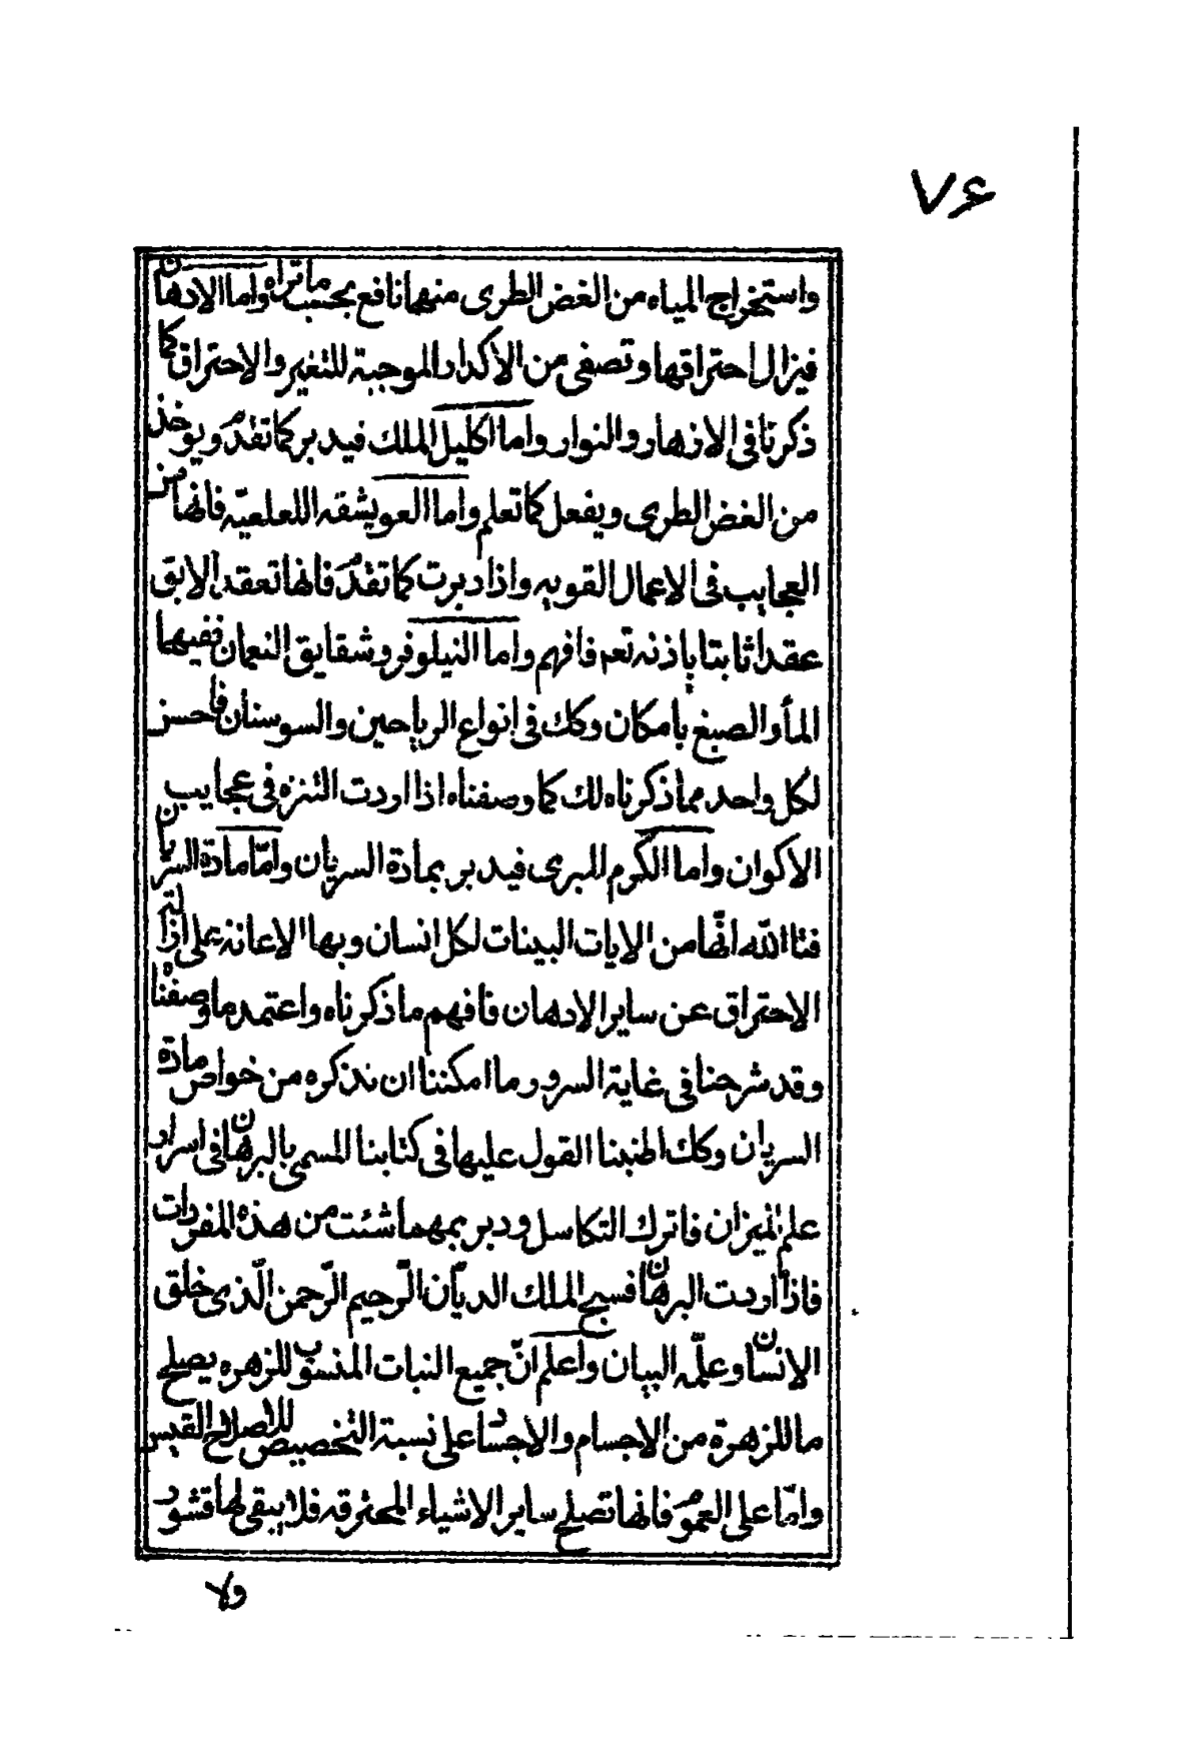 ۷۶
واستخراج المیاه من الغض الطری منهما نافع بحسب ماتراه واما الادهان
فیزال احتراقها وتصفی من الاکدار الموجبة للتغیر والاحتراق کما
ذکرنا فی الازهار والنوار واما اکلیل الملك فیدبر کما تقدم ویوخذ
من الغض الطری ویفعل کما تعلم واما العویشقه اللعلعیّه فانها من
العجایب فی الاعمال القویه واذا دبرت کما تقدم فانها تعقد الابق
عقدا ثابتا باذنه تعه فافهم واما النیلوفر وشقایق النعمان ففیهما
المأ والصبغ بامکان وکك فی انواع الریاحین والسوسنان فاحسن
لکل واحد مما ذکرناه لك کما وصفناه اذا اردت التنزه فی عجایب
الاکوان واما الکرم البری فیدبر بمادة السریان وامّا مادة السریان
فتا الله انّها من الایات البینات لکل انسان وبها الاعانة علی ازالة
الاحتراق عن سایر الادهان فافهم ما ذکرناه واعتمد ما وصفناه
وقد شرحنا فی غایة السرور ما امکننا ان نذکره من خواص مادة
السریان وکك اطنبنا القول علیها فی کتابنا المسمی بالبرهان فی اسرار
علم المیزان فاترك التکاسل ودبر بمهما شئت من هذه المفردات
فاذا اردت البرهان فسبح الملك الدیّان الرّحیم الرّحمن الّذی خلق
الانسان وعلّمه البیان واعلم انّ جمیع النبات المنسوب للزهره یصلح
ما للزهرة من الاجسام والاجساد علی نسبة التخصیص للاصلاح القبس
وامّا علی العموم فانها تصلح سایر الاشیاء المحترقه فلا یبقی لها قشور
ولا